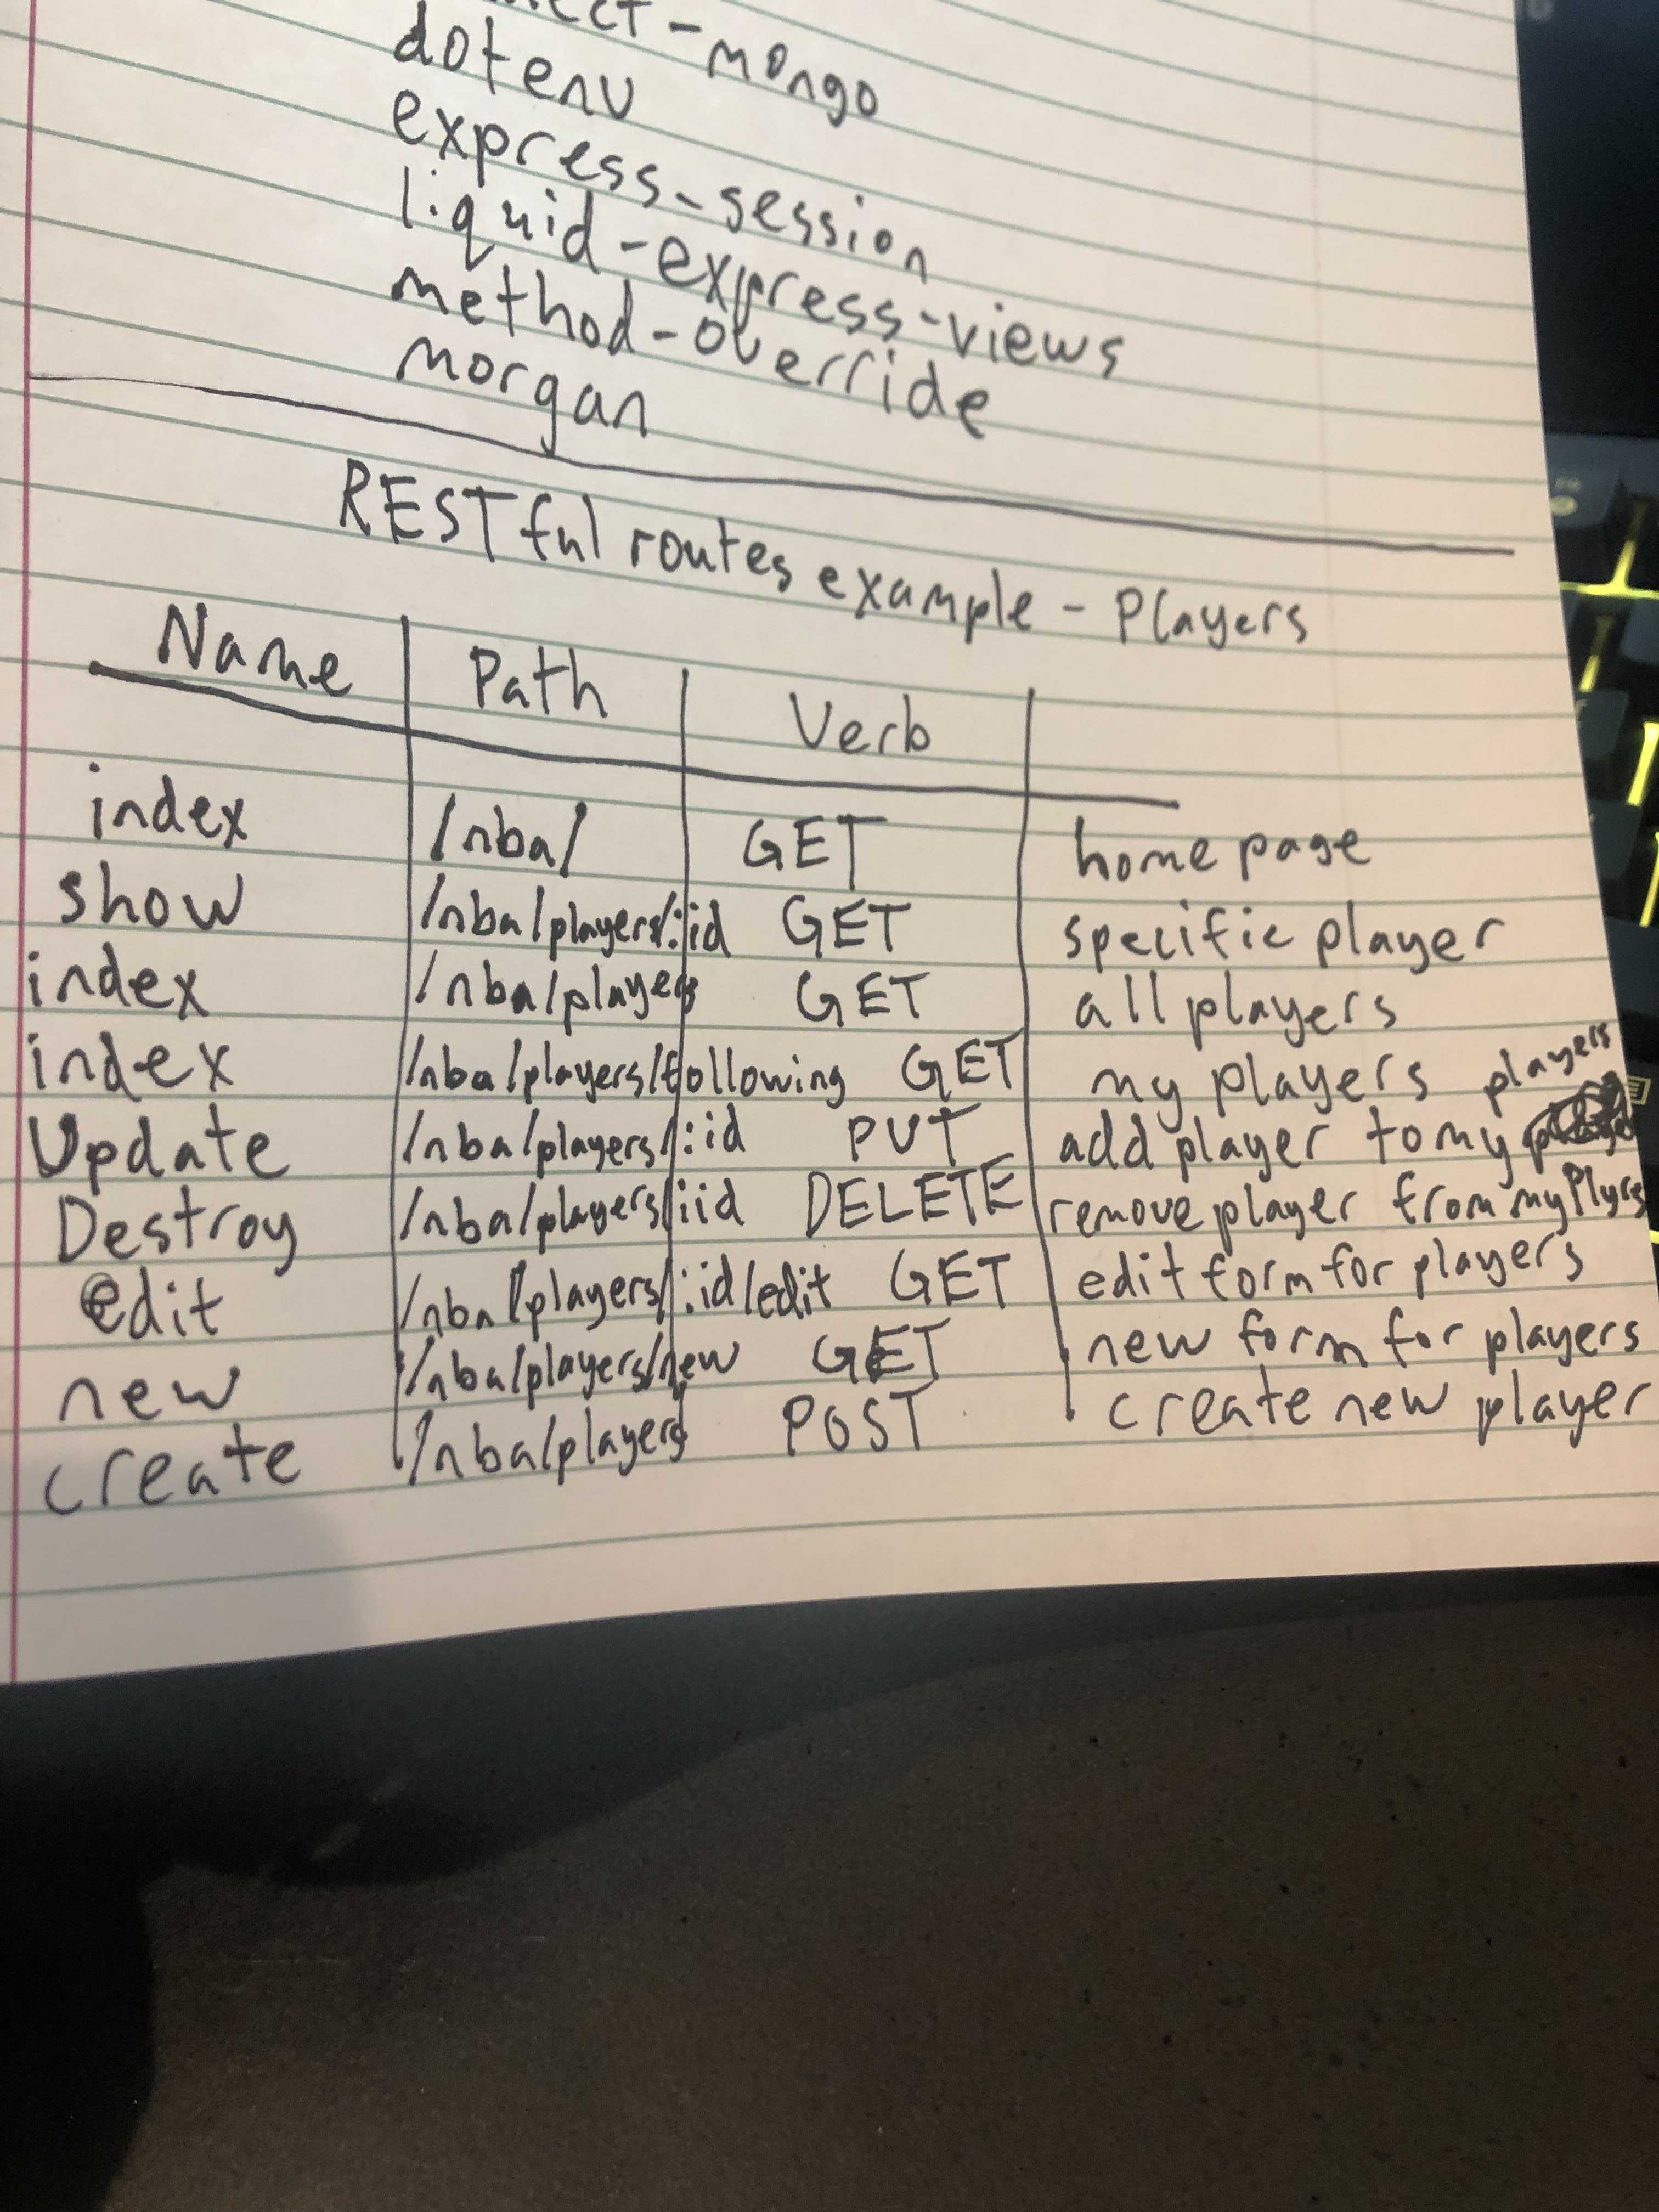 -mongo
dotenv
express-session
liquid-express-views
method-override
morgan
RESTful routes example - Players
Name Path Verb
index /nba/ GET home page
show /nba/players/:id GET specific player
index /nba/players GET all players
index /nba/players/following GET my players
Update /nba/players/:id PUT add player to my players
Destroy /nba/players/:id DELETE remove player from my Plyrs
edit /nba/players/:id/edit GET edit form for players
new /nba/players/new GET new form for players
create /nba/players POST create new player